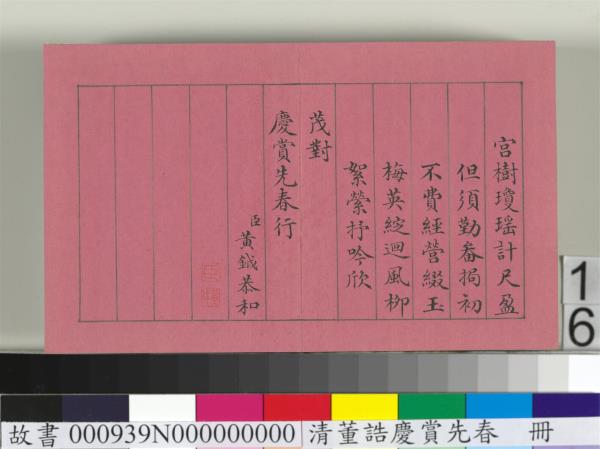 宫樹瓊瑶計尺盈
但須勤番掲初
不費經營綴玉
梅英綻迴風柳
絮縈抒吟欣
茂對
慶賞先春行
臣黃鉞恭和
16
故書 000939N000000000 清董誥慶賞先春 冊